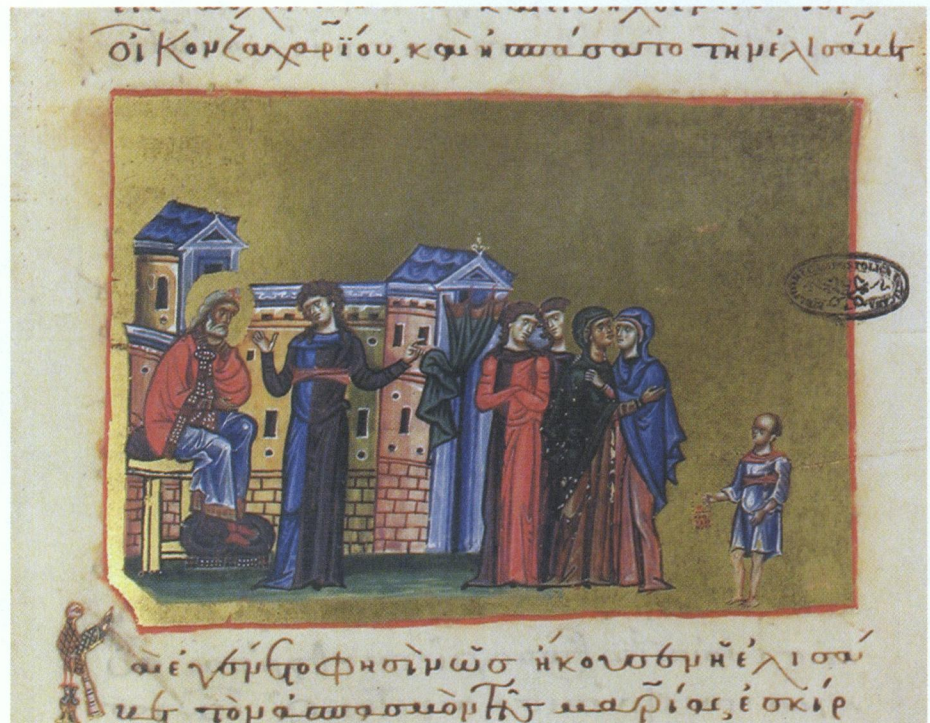 οἶκον ζαχαρίου, καὶ ἠσπάσατο τὴν ἐλισάβετ
Καὶ ἐγένετο φησὶν ὡς ἤκουσεν ἡ ἐλισά
βετ τὸν ἀσπασμὸν τῆς μαρίας, ἐσκίρ